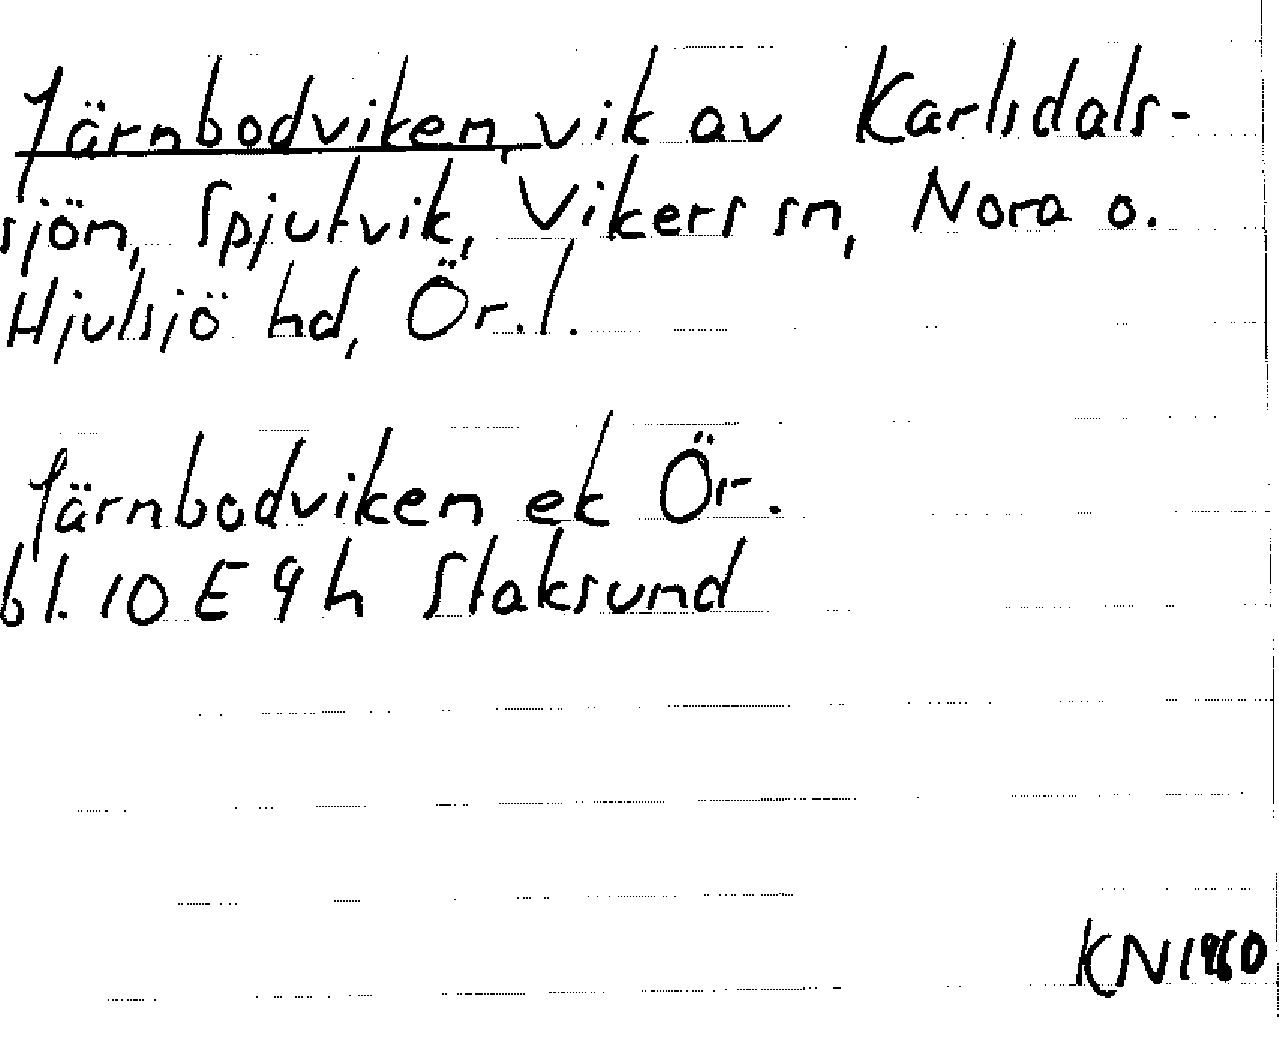 Järnbodviken, vik av Karlsdals-
sjön, Spjutvik, Vikers sn, Nora o.
Hjulsjö hd, Ör. l.
Järnbodviken ek Ör.
bl. 10 E 9 h Slaksund
KN 1960